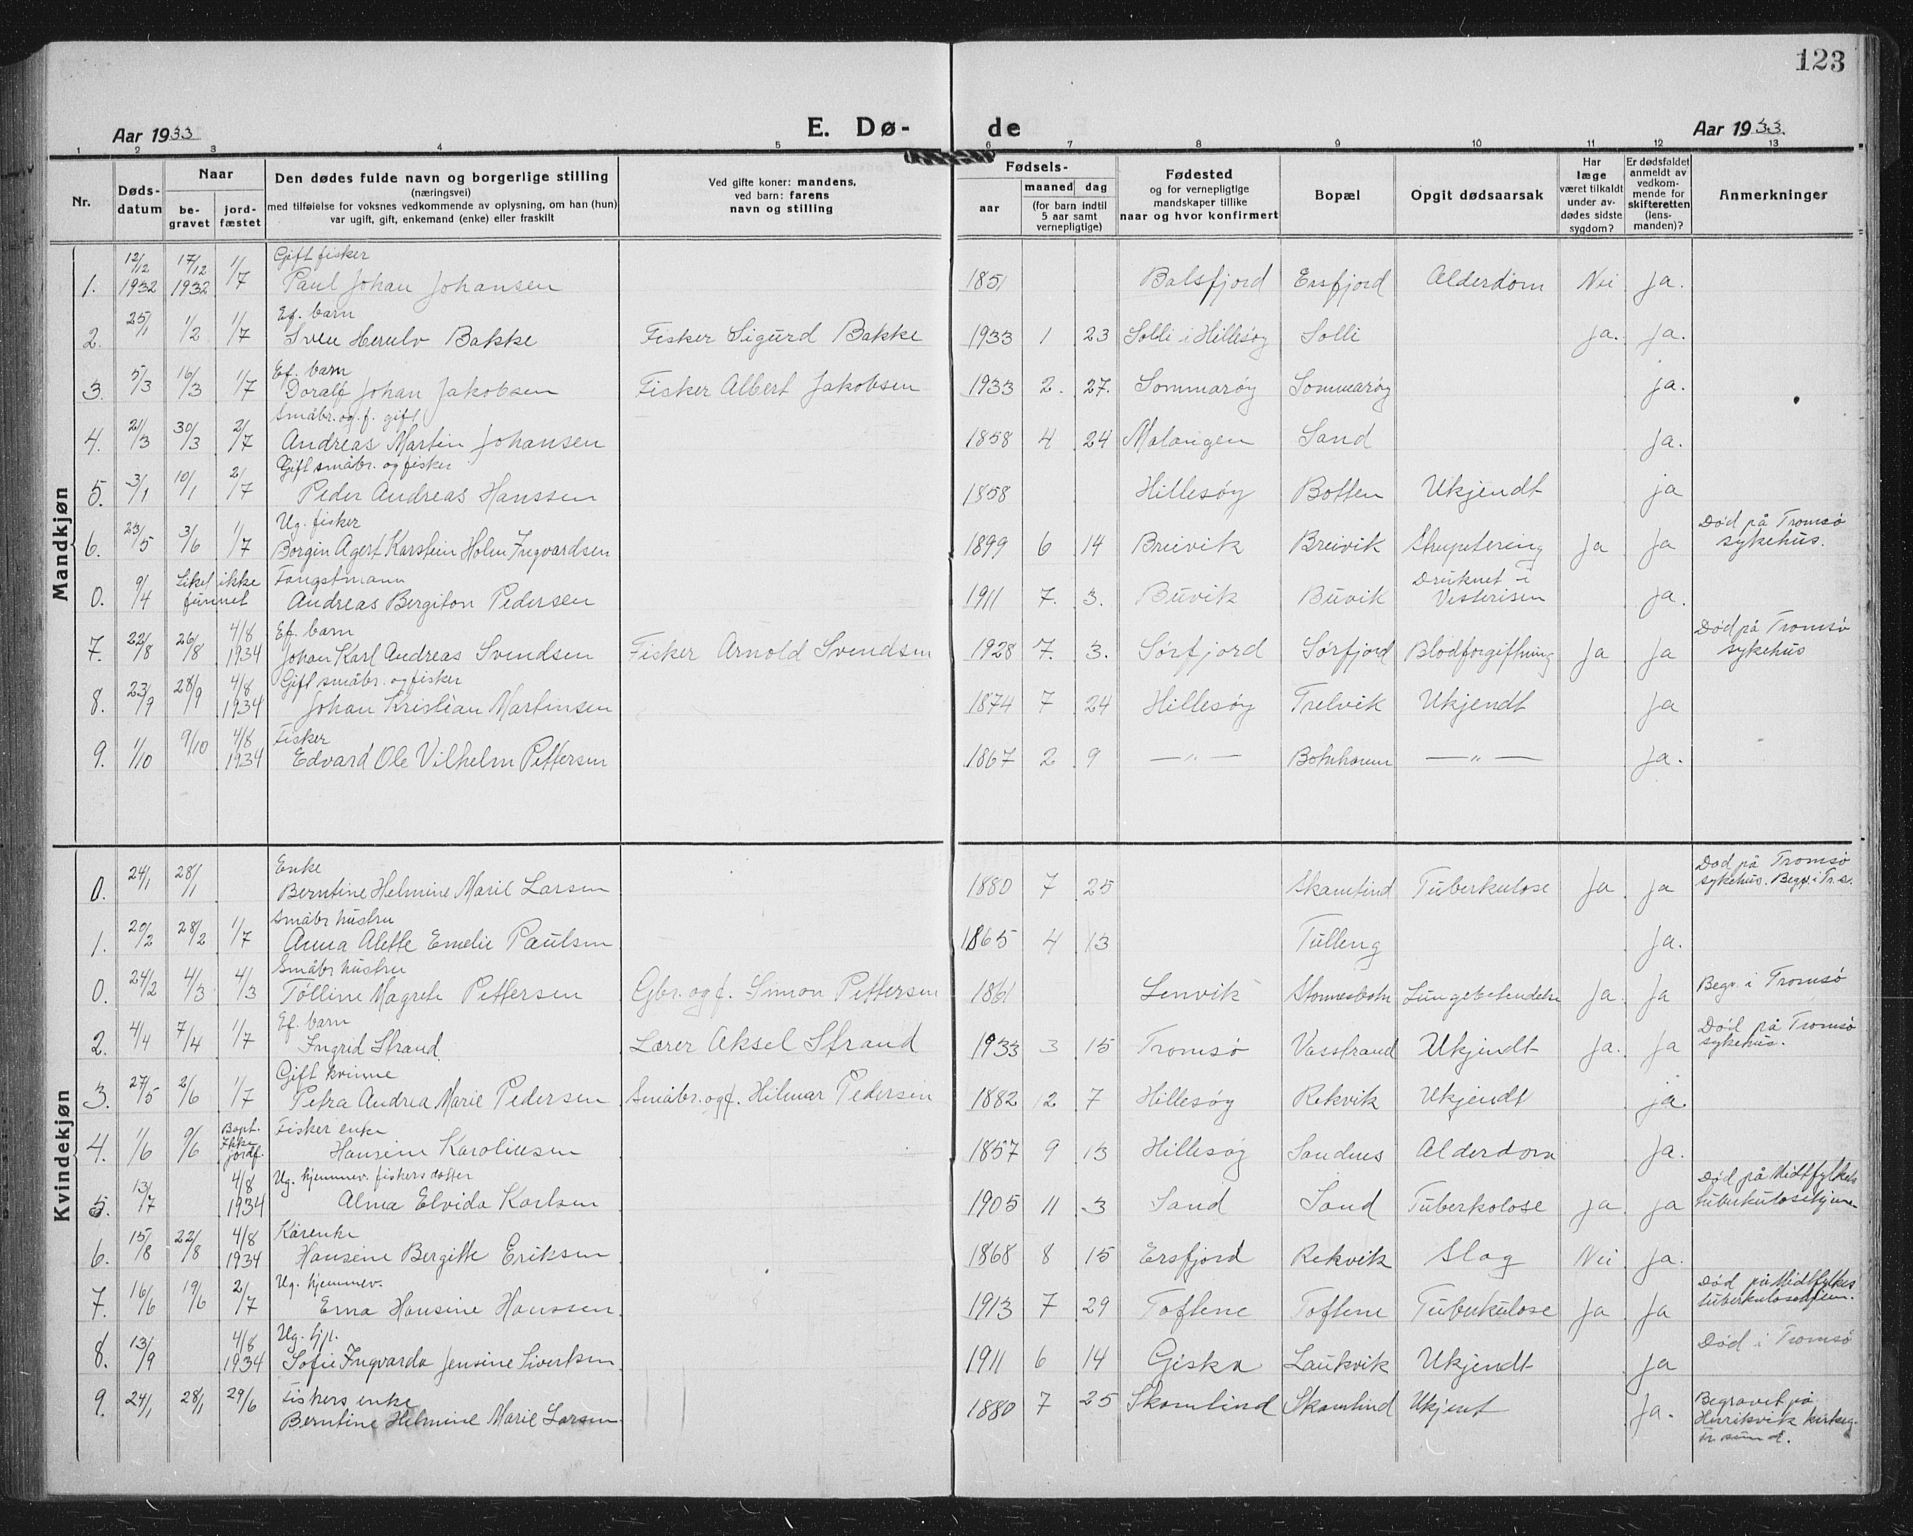 123
Aar 1933
E. Dø-
de
Aar 1933.
1 2 3 4 5 6 7 8 9 10 11 12 13
Nr.
Døds-
datum
Naar
be-
gravet
jord-
fæstet
Den dødes fulde navn og borgerlige stilling
(næringsvei)
med tilføielse for voksnes vedkommende av oplysning, om han (hun)
var ugift, gift, enkemand (enke) eller fraskilt
Ved gifte koner: mandens,
ved barn: farens
navn og stilling
Fødsels-
aar
maaned dag
(for barn indtil
5 aar samt
vernepligtige)
Fødested
og for vernepligtige
mandskaper tillike
naar og hvor konfirmert
Bopæl
Opgit dødsaarsak
Har
læge
været tilkaldt
under av-
dødes sidste
sygdom?
Er dødsfaldet
anmeldt av
vedkom-
mende for
skifteretten
(lens-
manden)?
Anmerkninger
Mandkjøn
Gift fisker
1. 12/12 1932 17/12 1932 1/7 Paul Johan Johansen 1851 Balsfjord Ersfjord Alderdom Nei Ja.
Ef. barn
2. 25/1 1/2 1/7 Sven Herulv Bakke Fisker Sigurd Bakke 1933 1 23 Solli i Hillesøy Solli Ja. Ja.
Ef. barn
3. 5/3 16/3 1/7 Doralf Johan Jakobsen Fisker Albert Jakobsen 1933 2. 27. Sommarøy Sommarøy Ja.
Småbr. og f. gift
4. 21/3 30/3 2/7 Andreas Martin Johansen 1858 4 24 Malangen Sand Ja.
Gift småbr. og fisker
5. 3/1 10/1 2/7 Peder Andreas Hanssen 1858 Hillesøy Botten Ukjendt ja
Ug. fisker
6. 23/5 3/6 1/7 Borgin Agert Karstein Holm Ingvardsen 1899 6 14 Breivik Breivik Strupetering Ja Ja Død på Tromsø
sykehus.
Fangstmann
0. 9/4 Liket ikke funnet Andreas Bergiton Pedersen 1911 7. 3. Buvik Buvik Druknet i Vesterisen Ja.
Ef. barn
7. 22/8 26/8 4/8 1934 Johan Karl Andreas Svendsen Fisker Arnold Svendsen 1928 7. 3. Sørfjord Sørfjord Blodforgiftning Ja Ja Død på Tromsø
sykehus
Gift småbr. og fisker
8. 23/9 28/9 4/8 1934 Johan Kristian Martinsen 1874 7 24 Hillesøy Trelvik Ukjendt Ja
Fisker
9. 1/10 9/10 4/8 1934 Edvard Ole Vilhelm Pettersen 1867 2 9 —"— Botnhavn —"— Ja.
Kvindekjøn
Enke
0. 24/1 28/1 Berntine Helmine Marie Larsen 1880 7 25 Skamtind Tuberkulose Ja Ja Død på Tromsø
sykehus. Begr. i Tr.s.
Småbr hustru
1. 20/2 28/2 1/7 Anna Alette Emelie Paulsen 1865 4 13 Tulleng Ja.
Småbr hustru
0. 24/2 4/3 4/3 Tølline Magrete Pettersen Gbr. og f. Simon Pettersen 1861 Lenvik Stonnesbotn Lungebetendelse Ja. Ja Begr. i Tromsø
Ef. barn
2. 4/4 7/4 1/7 Ingrid Strand Lærer Aksel Strand 1933 3 15 Tromsø Vasstrand Ukjendt Ja. Ja Død på Tromsø
sykehus.
Gift kvinne
3. 27/5 2/6 1/7 Petra Andrea Marie Pedersen Småbr. og f. Hilmar Pedersen 1882 12 7 Hillesøy Rekvik Ukjendt ja
Fisker enke
4. 1/6 9/6 Bapt. Ikke jordf. Hansine Karoliusen 1857 9 13 Hillesøy Sandnes Alderdom Ja.
Ug. hjemmev. fiskers datter
5. 13/7 4/8 1934 Alma Elvida Karlsen 1905 11 3 Sand Sand Tuberkolose ja ja Død på Midtfylkets
tuberkulosehjem
Kårenke
6. 15/8 22/8 4/8 1934 Hansine Bergitte Eriksen 1868 8 15 Ersfjord Rekvik Slag Nei Ja.
Ug. hjemmev.
7. 16/6 19/6 2/7 Erna Hansine Hanssen 1913 7 29 Toftene Toftene Tuberkulose Ja Ja Død på Midtfylkes
tuberkulosehjem.
Ug. hjp.
8. 13/9 4/8 1934 Sofie Ingvarda Jensine Sivertsen 1911 6 14 Giska Laukvik Ukjendt Ja Død i Tromsø
Fiskers enke
9. 24/1 28/1 29/6 Berntine Helmine Marie Larsen 1880 7 25 Skamtind Skamtind Ukjent Ja. Begravet på
Henrikvik kirkeg.